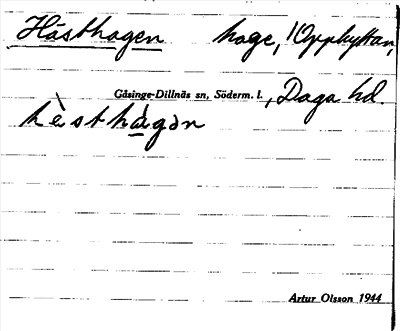 Hästhagen hage, Upphyttan,
Gåsinge-Dillnäs sn, Söderm. l., Daga hd.
hèsthágən
Artur Olsson 1944